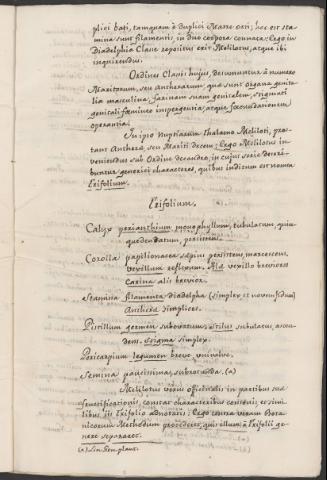 plici basi, tamquam è duplici Matre orti; hoc est sta-
mina sunt filamenti, in duo corpora connata: Ergo in
Diadelphia Classe repositus erit Melilotus, atque ibi
inquirendus.
Ordines Classis hujus, desumuntur à numero
Maritorum, seu antherarum, quae sunt organa genita-
lia masculina, farinam suam genitalem, stigmati
genitali foemineo inspergentia, atque foecundationem
operantia.
In ipso nuptiarum thalamo Meliloti, pro-
stant Antherae, seu Mariti decem; Ergo Melilotus in-
veniendus sub Ordine decandro, in cujus serie descri-
buntur generici characteres, quibus inditum est nomen
Trifolium.
Trifolium.
Calyx perianthium monophyllum, tubulatum, quin-
quedentatum, persistens.
Corolla papilionacea saepius persistens, marcescens,
vexillum reflexum. Alae vexillo breviores
Carina alis brevior.
Stamina filamenta diadelpha (simplex et novemfidum)
Anthera simplices.
Pistillum germen subovatum, stilus subulatus, ascen-
dens. stigma simplex.
Pericarpium legumen breve univalve,
Semina paucissima, subrotunda. (a)
Melilotus verus officinalis in partibus suis
fructificationis, constat characteribus communi; et simi-
libus iis Trifolio adnotatis; Ergo contra veram Bota-
nicorum Methodum procederet, qui illum à Trifolii ge-
nere separaret.
(a) Lin. Gen. plant.